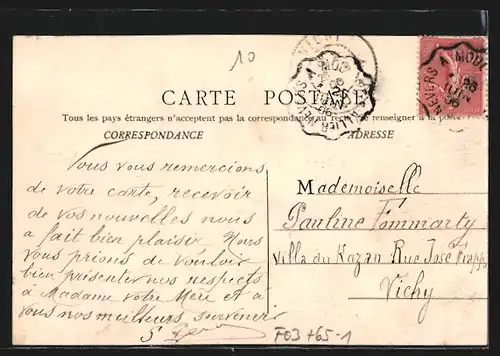 10
VICHY
NEVERS A MOULINS
25
JUIN
06
NEVERS A MOUL
25
JUIN
06
CARTE POSTALE
Tous les pays étrangers n'acceptent pas la correspondance au recto se renseigner à la poste
CORRESPONDANCE
ADRESSE
Vous vous remercions
de votre carte, recevoir
de vos nouvelles nous
a fait bien plaisir. Nous
vous prions de vouloir
bien présenter nos respects
à Madame votre Mère et à
vous nos meilleurs souvenirs
Mademoiselle
Pauline Fommarty
Villa du Kazan Rue José Frappa
Vichy
F03+65-1